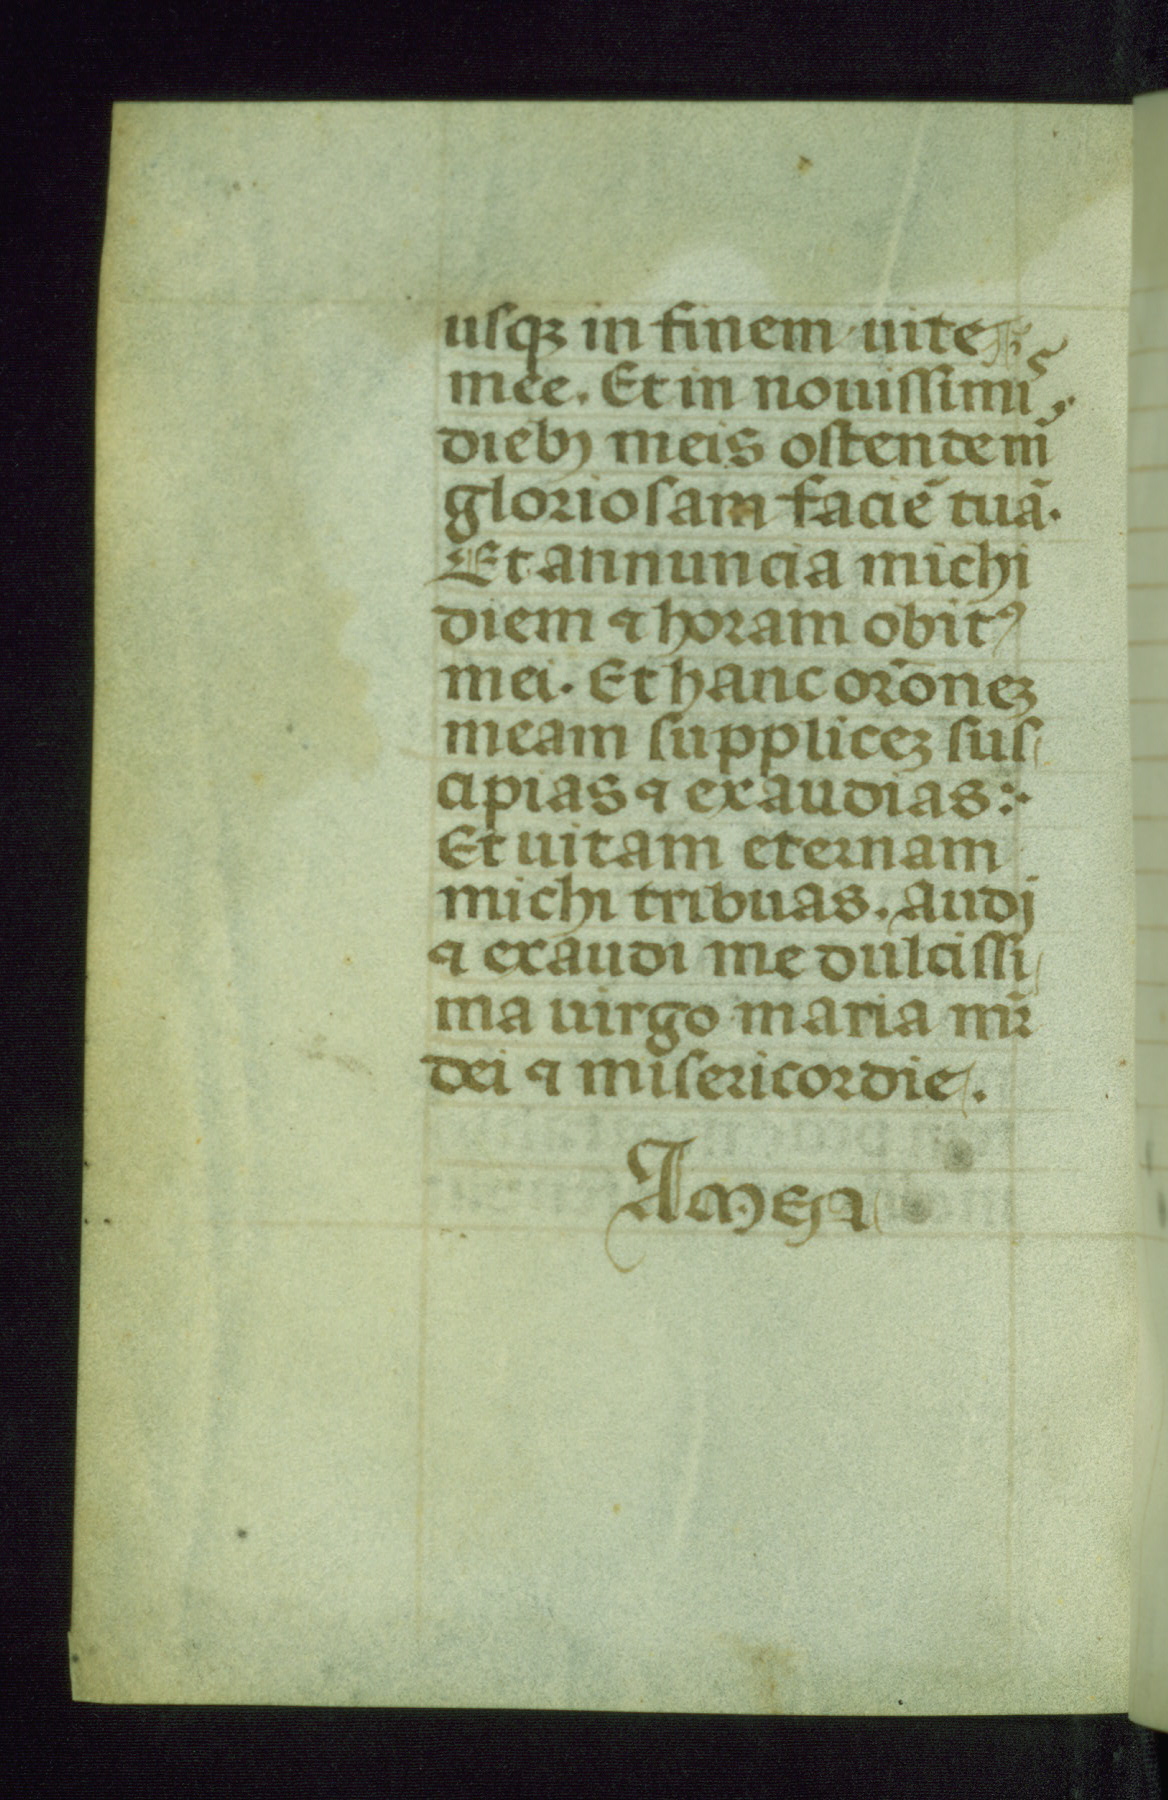 usqꝫ in finem uite
mee. Et in nouissimis
dieb9 meis ostende m̄
gloriosam faciē tuā.
Et annuncia michi
diem ⁊ horam obitꝰ
mei. Et hanc or̄oneꝫ
meam suppliceꝫ sus
cipias ⁊ exaudias:·
Et uitam eternam
michi tribuas. Audj
⁊ exaudi me dulcissi
ma uirgo maria mr̄
dei ⁊ misericordie.
Amen